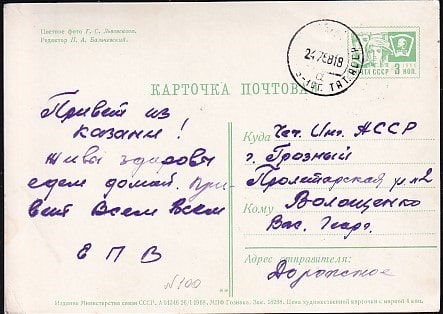 Цветное фото Г. С. Львовского.
Редактор П. А. Бальчевский.
2476818
ПОЧТА СССР 3 КОП.
КАРТОЧКА ПОЧТОВАЯ
Привет из
казани!
Живы здоровы
едем домой. При-
вет Всем Всем
Е П В
N100
Куда Чеч. Инг. АССР
г. Грозный
Пролетарская ул. 2
Кому Волощенко
Вас. Геор.
Адрес отправителя:
Дорожное
Издание Министерства связи СССР. А 51246 26/I 1968. МПФ Гознака. Зак. Цена художественной карточки с маркой 4 коп.